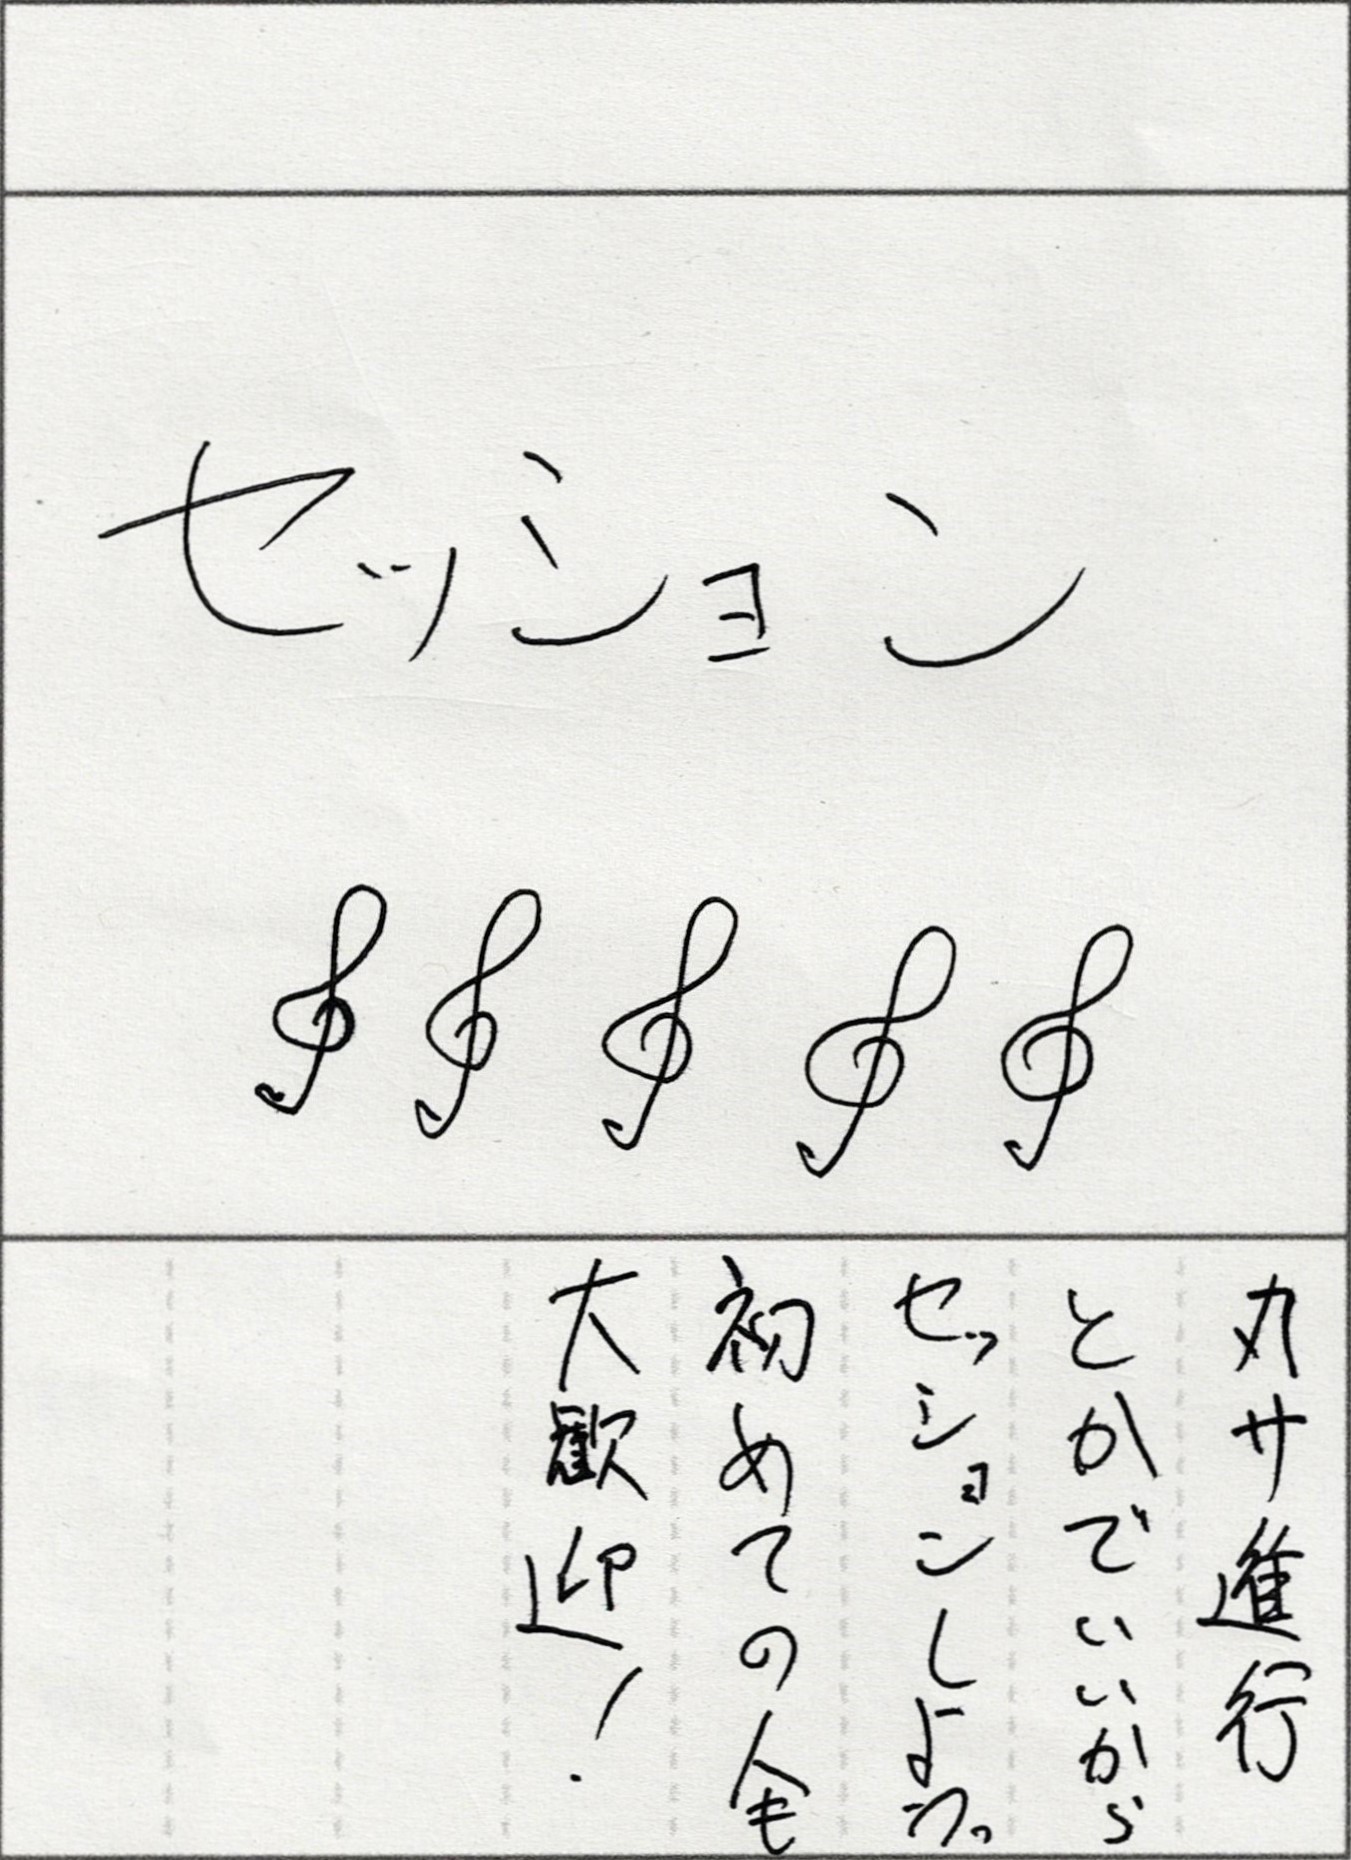 セッション
丸サ進行
とかでいいから
セッションしよう。
初めての人も
大歓迎!